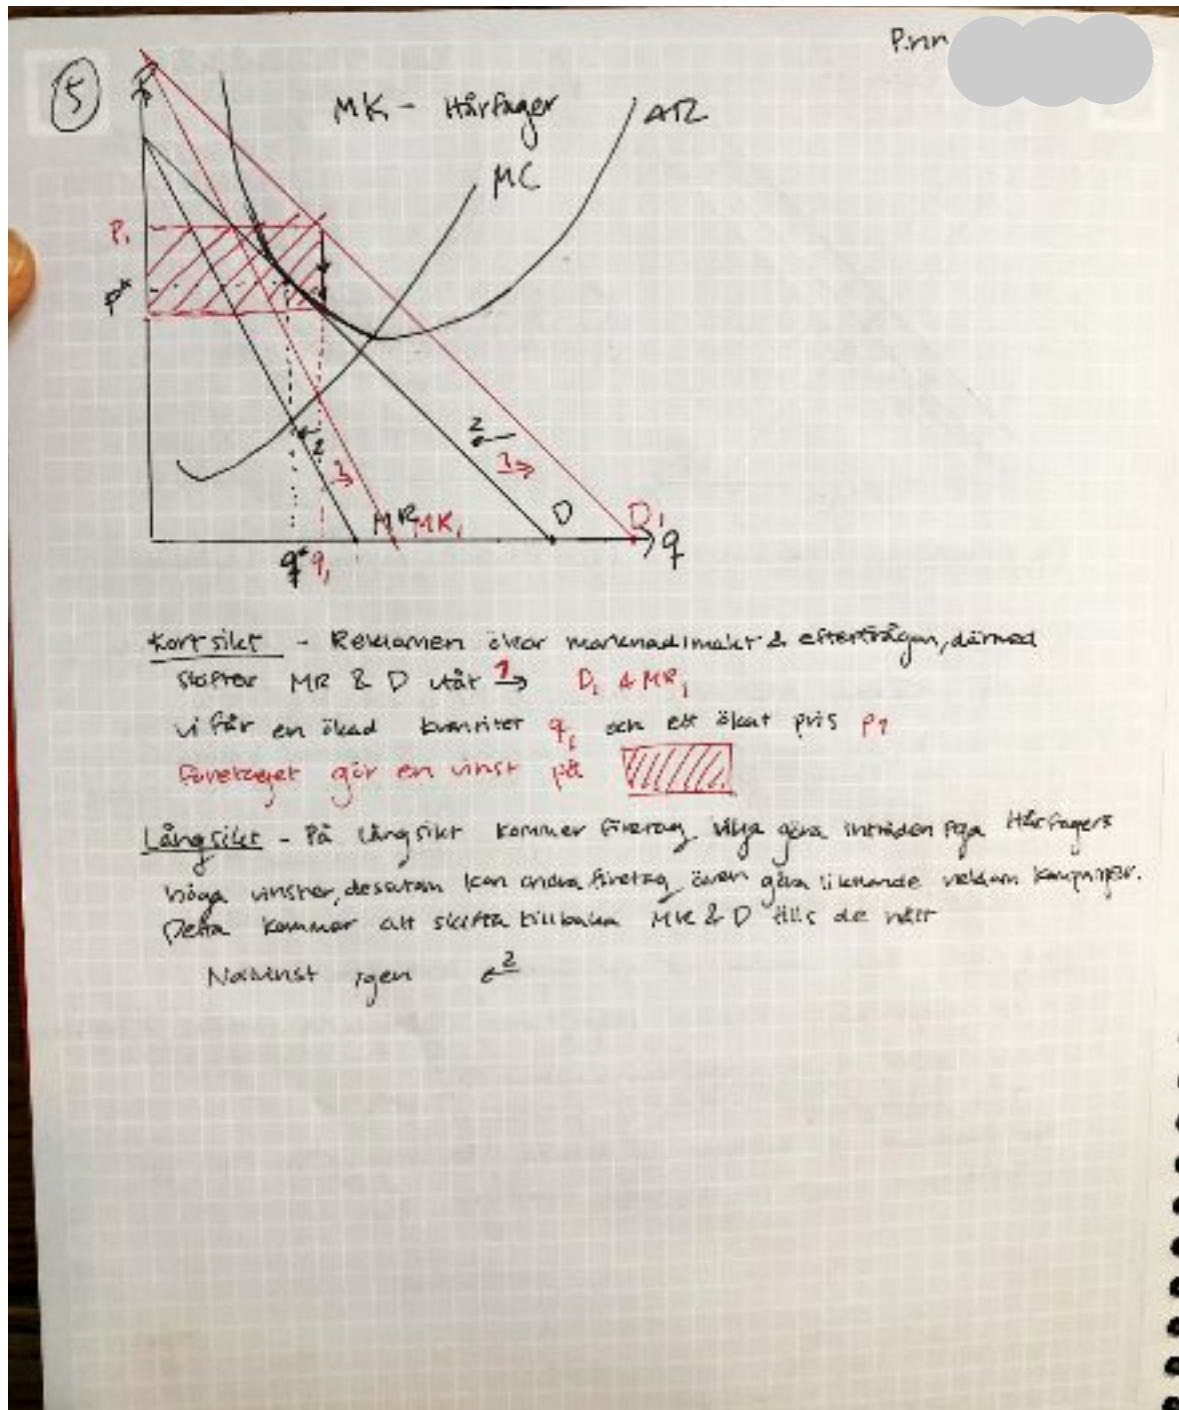 P.nr
5
P
MK - Hårfager
ATC
MC
P₁
p*
2
1
2
1
MR
MR₁
D
D₁
q
q*
q₁
Kortsikt - Reklamen ökar marknadsmakt & efterfrågan, därmed
skiftar MR & D utåt 1→ D₁ & MR₁
vi får en ökad kvantitet q₁ och ett ökat pris P₁
företaget gör en vinst på
Långsikt - På långsikt kommer företag vilja göra inträden pga Hårfagers
höga vinster, desutom kan andra företag även göra liknande reklam kampanjer.
Detta kommer att skifta tillbaka MR & D tills de nått
Nollvinst igen ←2